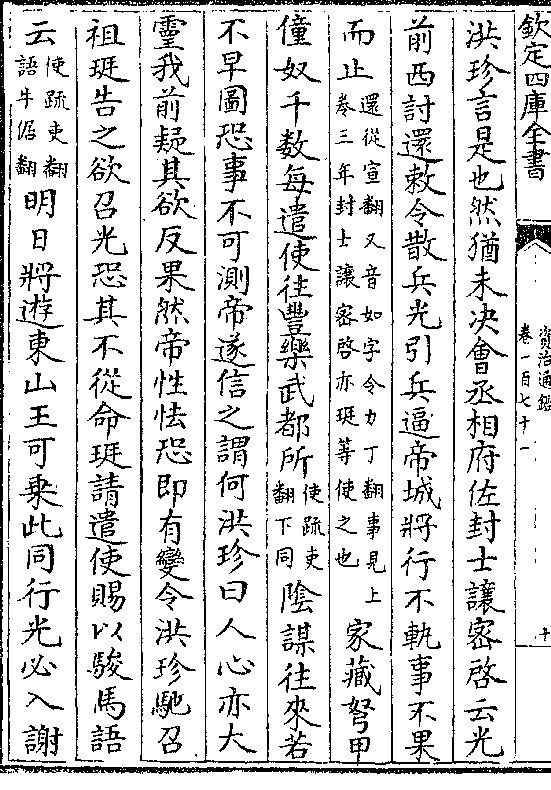 欽定四庫全書
資治通鑑
卷一百七十一
十
洪珍言是也然猶未决會丞相府佐封士讓密啓云光
前西討還敕令散兵光引兵逼帝城將行不軌事不果
而止還從宣翻又音如字令力丁翻事見上
卷三年封士讓密啓亦珽等使之也家藏弩甲
僮奴千數每遣使往豐樂武都所使疏吏
翻下同隂謀往來若
不早圖恐事不可測帝遂信之謂何洪珍曰人心亦大
靈我前疑其欲反果然帝性怯恐即有變令洪珍馳召
祖珽告之欲召光恐其不從命珽請遣使賜以駿馬語
云使疏吏翻
語牛倨翻明日將遊東山王可乗此同行光必入謝